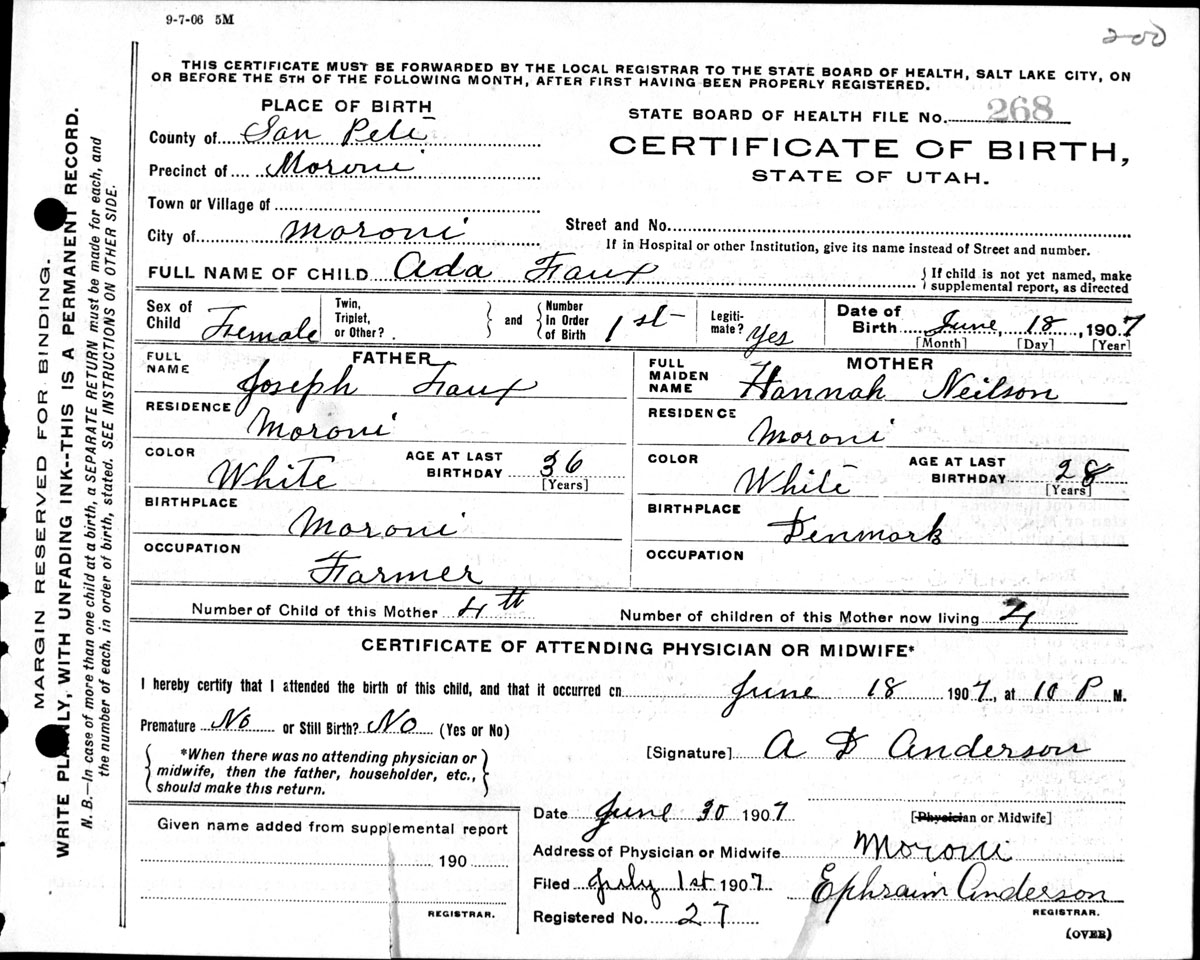 9-7-06 5M
200
THIS CERTIFICATE MUST BE FORWARDED BY THE LOCAL REGISTRAR TO THE STATE BOARD OF HEALTH, SALT LAKE CITY, ON
OR BEFORE THE 5TH OF THE FOLLOWING MONTH, AFTER FIRST HAVING BEEN PROPERLY REGISTERED.
PLACE OF BIRTH
STATE BOARD OF HEALTH FILE No. 268
County of San Pete
CERTIFICATE OF BIRTH,
Precinct of Moroni
STATE OF UTAH.
Town or Village of
City of Moroni
Street and No.
If in Hospital or other Institution, give its name instead of Street and number.
FULL NAME OF CHILD Ada Faux
{If child is not yet named, make
supplemental report, as directed
Sex of Child Female
Twin, Triplet, or Other?
and
Number In Order of Birth 1st
Legiti-mate? Yes
Date of Birth June, 18, 1907
[Month] [Day] [Year]
FATHER
FULL NAME Joseph Faux
RESIDENCE Moroni
COLOR White
AGE AT LAST BIRTHDAY 36
[Years]
BIRTHPLACE Moroni
OCCUPATION Farmer
MOTHER
FULL MAIDEN NAME Hannah Neilson
RESIDENCE Moroni
COLOR White
AGE AT LAST BIRTHDAY 28
[Years]
BIRTHPLACE Denmark
OCCUPATION
Number of Child of this Mother 4th
Number of children of this Mother now living 4
CERTIFICATE OF ATTENDING PHYSICIAN OR MIDWIFE*
I hereby certify that I attended the birth of this child, and that it occurred on June 18 1907, at 10 P M.
Premature No or Still Birth? No (Yes or No)
*When there was no attending physician or
midwife, then the father, householder, etc.,
should make this return.
[Signature] A D Anderson
Date June 30 1907
[Physician or Midwife]
Given name added from supplemental report
190
REGISTRAR.
Address of Physician or Midwife Moroni
Filed July 1st 1907
Ephraim Anderson
REGISTRAR.
Registered No. 27
(OVER)
MARGIN RESERVED FOR BINDING.
WRITE PLAINLY, WITH UNFADING INK--THIS IS A PERMANENT RECORD.
N. B.—In case of more than one child at a birth, a SEPARATE RETURN must be made for each, and
the number of each, in order of birth, stated. SEE INSTRUCTIONS ON OTHER SIDE.